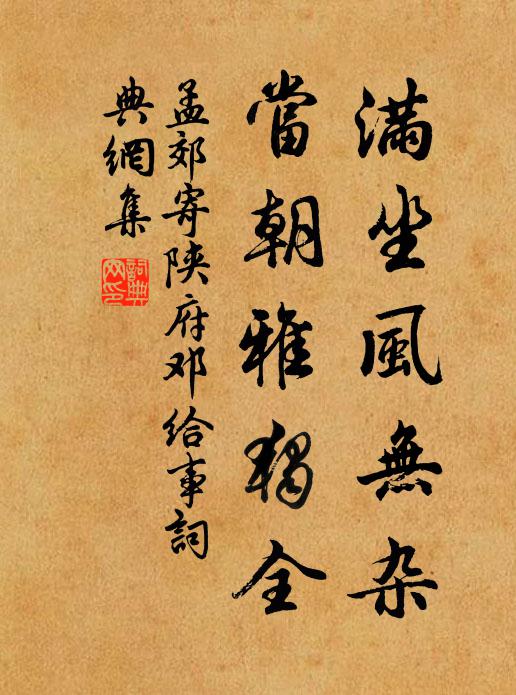 滿坐風無杂
當朝雅獨全
孟郊寄陕府邓给事詞
典網集
詞典
网印